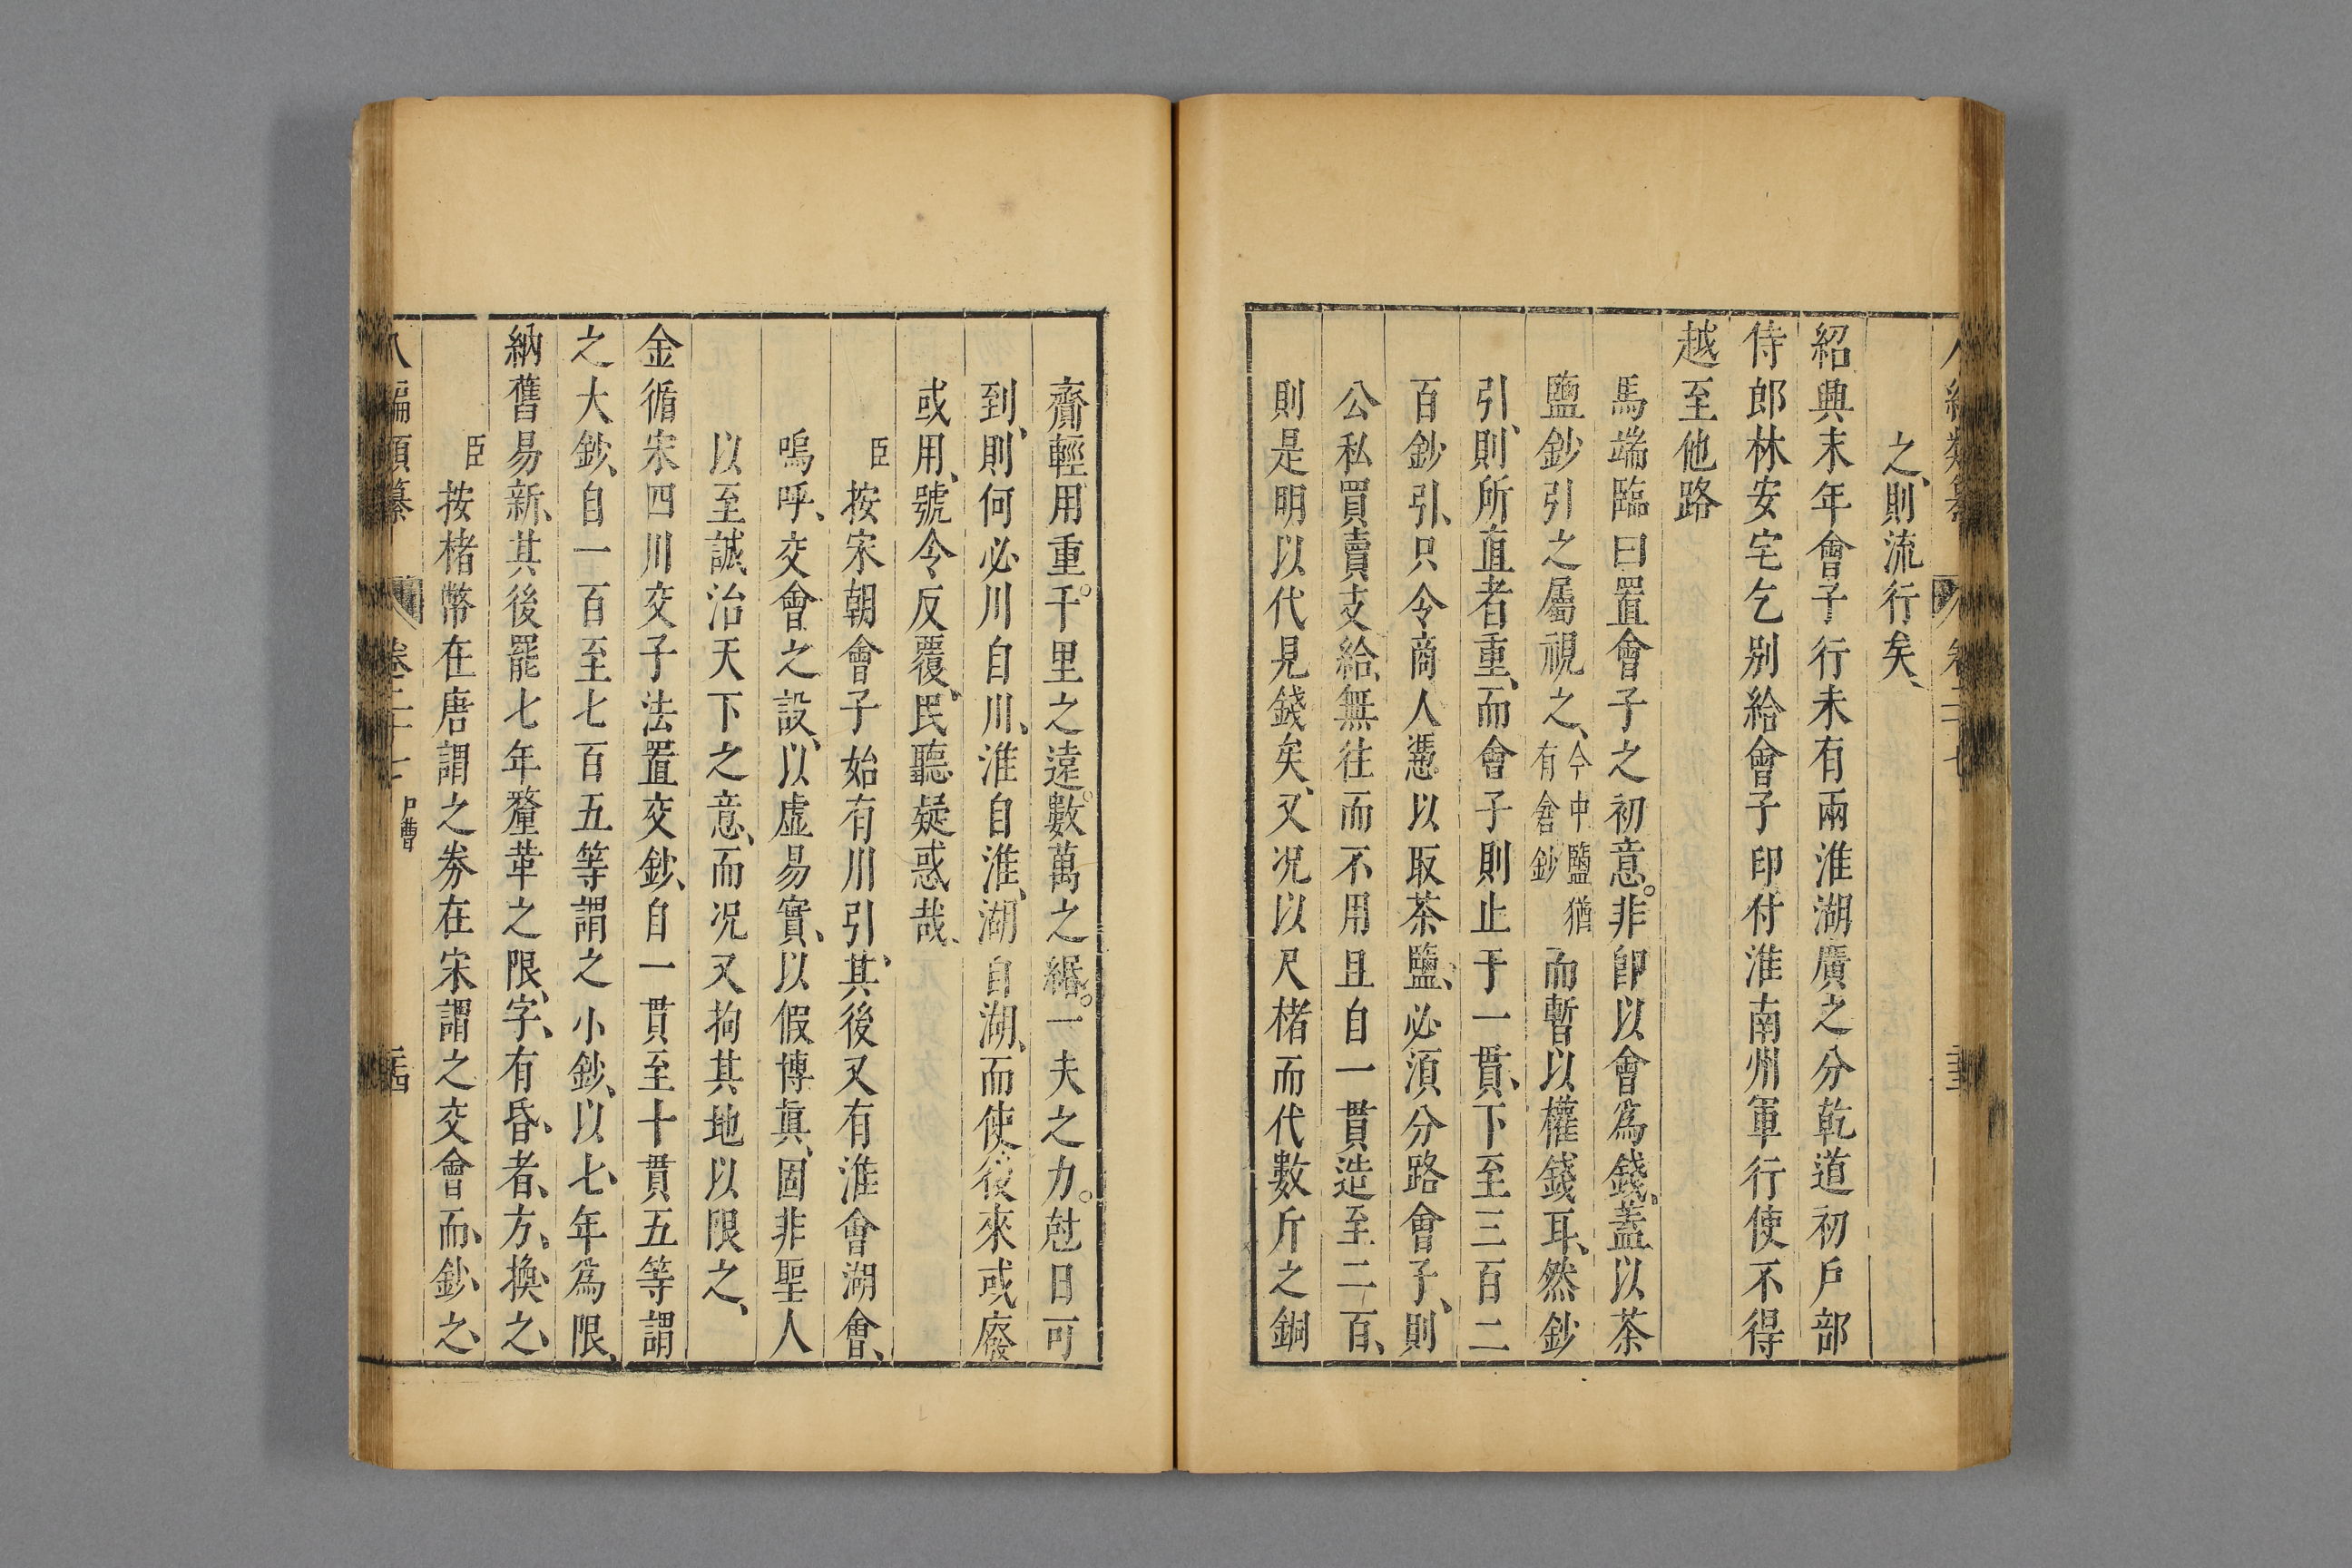 之、則流行矣、
紹興末年會子行未有兩淮湖廣之分乾道初戶部
侍郎林安宅乞别給會子印付淮南州軍行使不得
越至他路
馬端臨曰置會子之初意。非卽以會爲錢、蓋以茶
鹽鈔引之屬視之、今中鹽猶有倉鈔而暫以權錢耳、然鈔
引、則所直者重、而會子則止于一貫、下至三百二
百鈔引、只令商人憑以取茶鹽、必須分路會子、則
公私買賣支給、無往而不用且自一貫造至二百、
則是明以代見錢矣、又况以尺楮而代數斤之銅
齎輕用重。千里之遠。數萬之緡。一夫之力。尅日可
到、則何必川自川、淮自淮、湖自湖、而使後來或廢
或用、號令反覆、民聽疑惑哉、
臣按宋朝會子始有川引、其後又有淮會湖會、
嗚呼、交會之設、以虛易實、以假博眞、固非聖人
以至誠治天下之意、而况又拘其地以限之、
金循宋四川交子法置交鈔、自一貫至十貫五等謂
之大鈔、自一百至七百五等謂之小鈔、以七、年爲限、
納舊易新、其後罷七年釐革之限、字、有昏、者、方、換、之、
臣按楮幣在唐謂之券在宋謂之交會而、鈔、之、
八編類纂 卷二十七 戶曹